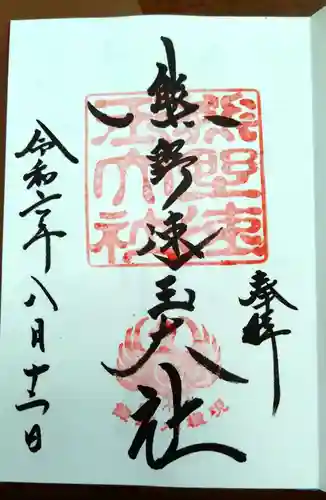 奉拝
熊野速玉大社
熊野速玉大社
令和二年八月十二日